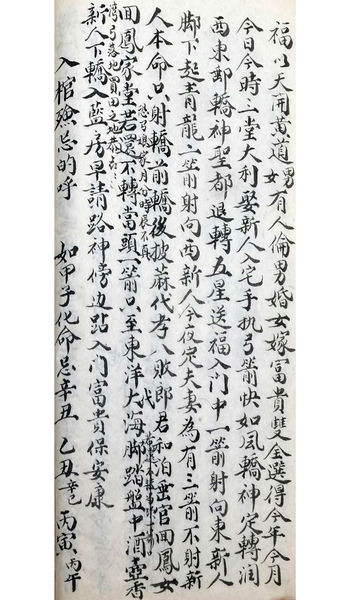 福以天開黄道男女有人倫男婚女嫁富貴雙全選得今年今月
今日今時三堂大利娶新人入宅手执弓箭快如風轎神定轉润
西東郵轎神聖都退轉五星送福入门中一箭射向東新人
脚下起青龍二箭射向西新人今夜定夫妻為有三箭不射新
人本命只射轎前轎後披蔴代孝八敗郎君和泊垂官回鳳女
回鳳家堂若還不轉當頭一箭只至東洋大海脚踏盤中酒壺香
新人下轎入蓝房早請路神傍边跕入门富貴保安康
入棺殮忌的呼 如甲子化命忌辛丑 乙丑辛巳 丙寅丙午